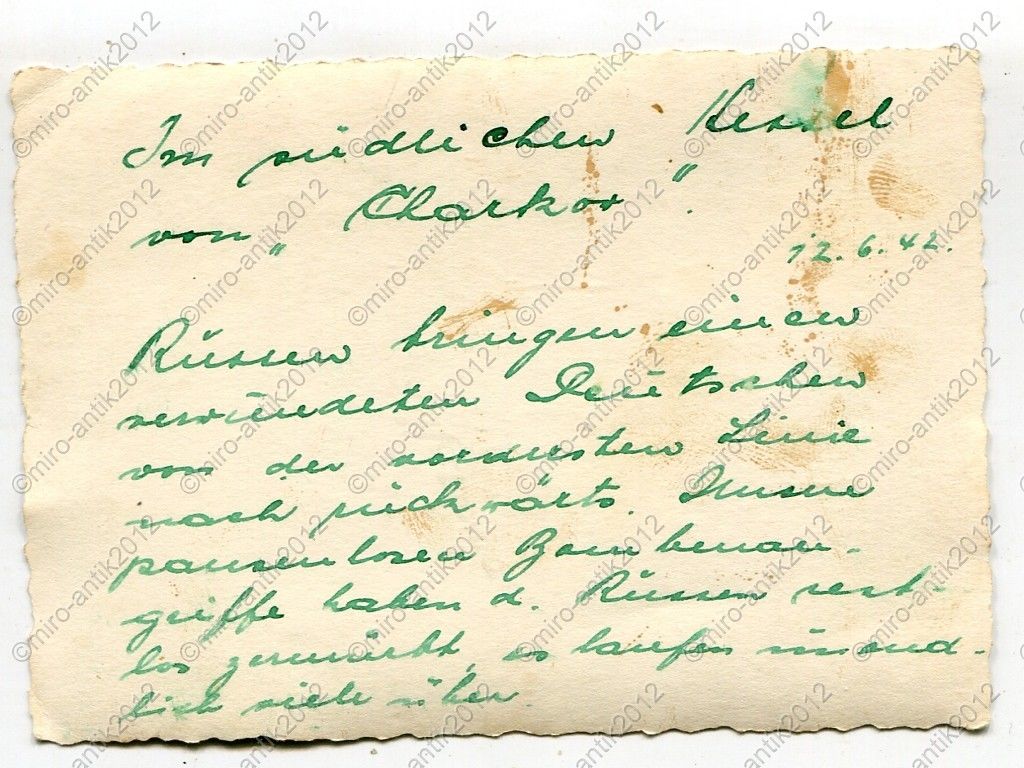 Im südlichen Kessel
von „Charkov".
12.6.42.
Rüssen bringen einen
verwündeten Deütschen
von der vordersten Linie
nach rückwärts. Unsere
pausenlosen Bombenan-
griffe haben d. Rüssen rest-
los zermürbt, es laufen ünend-
lich viele über.
©miro-antik2012